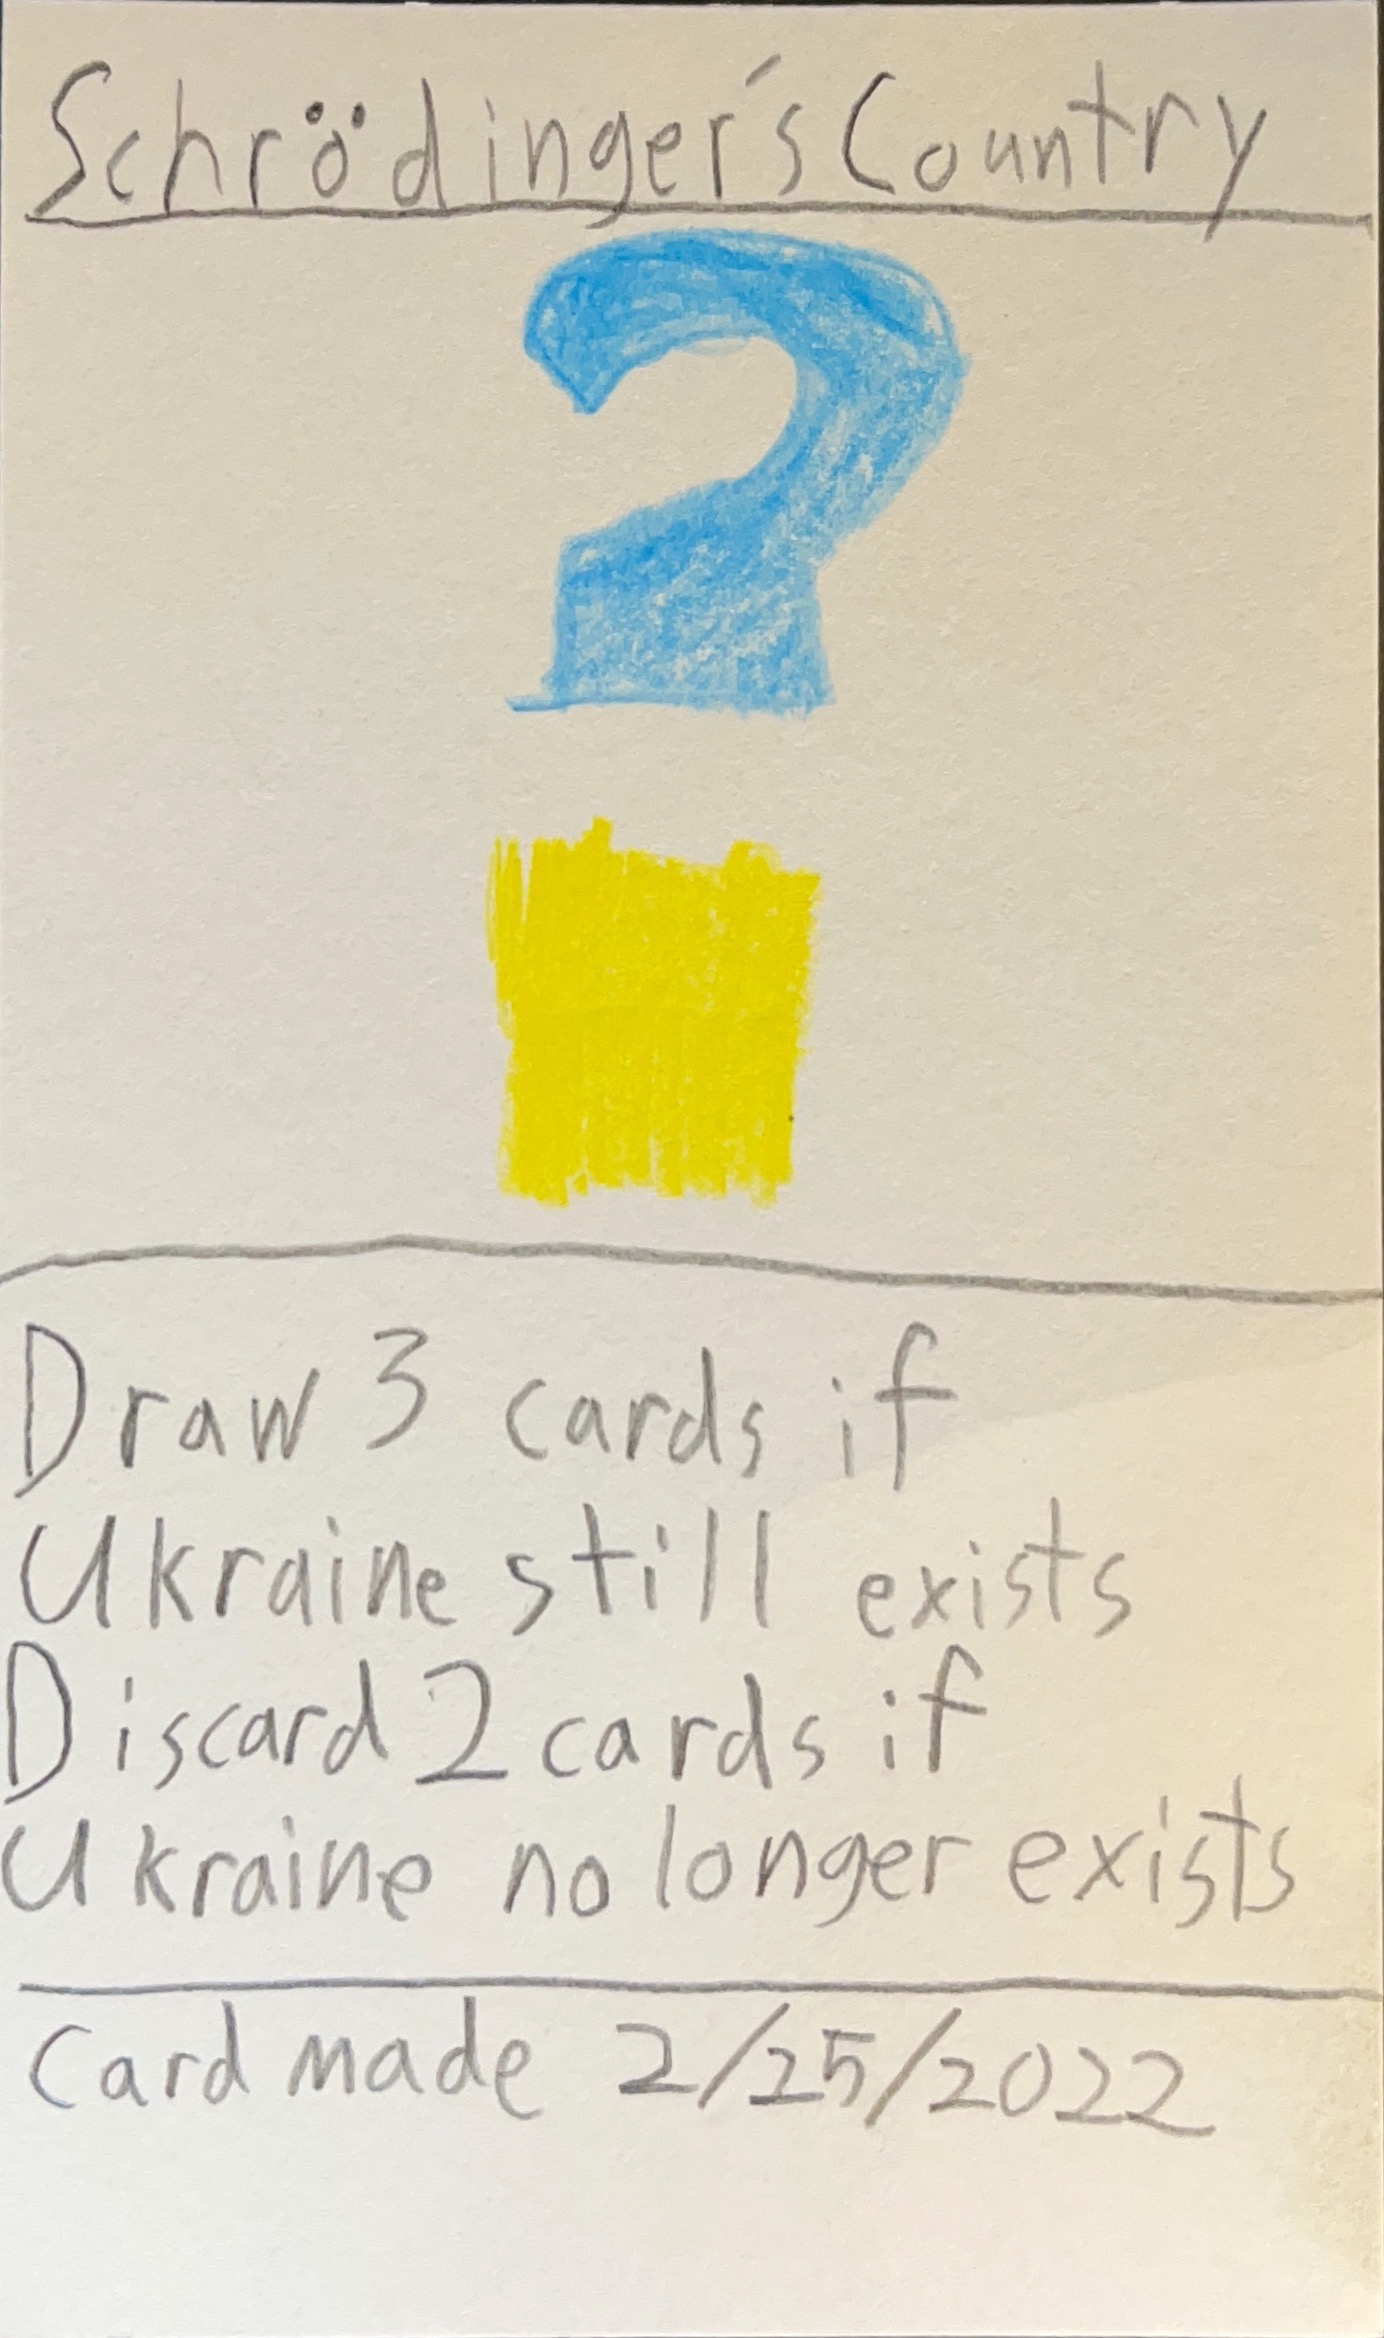 Schrödinger's Country
?
Draw 3 cards if
Ukraine still exists
Discard 2 cards if
Ukraine no longer exists
Card made 2/25/2022